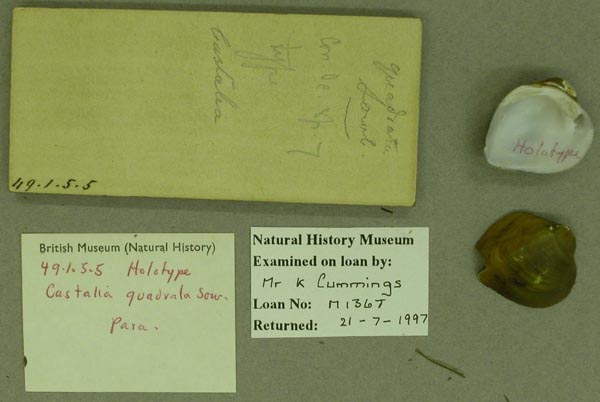 quadrata
Sowb.
type
Castalia
49.1.5.5
Holotype
British Museum (Natural History)
49.1.5.5 Holotype
Castalia quadrala Sow.
Para.
Natural History Museum
Examined on loan by:
Mr K Cummings
Loan No: M136T
Returned: 21-7-1997